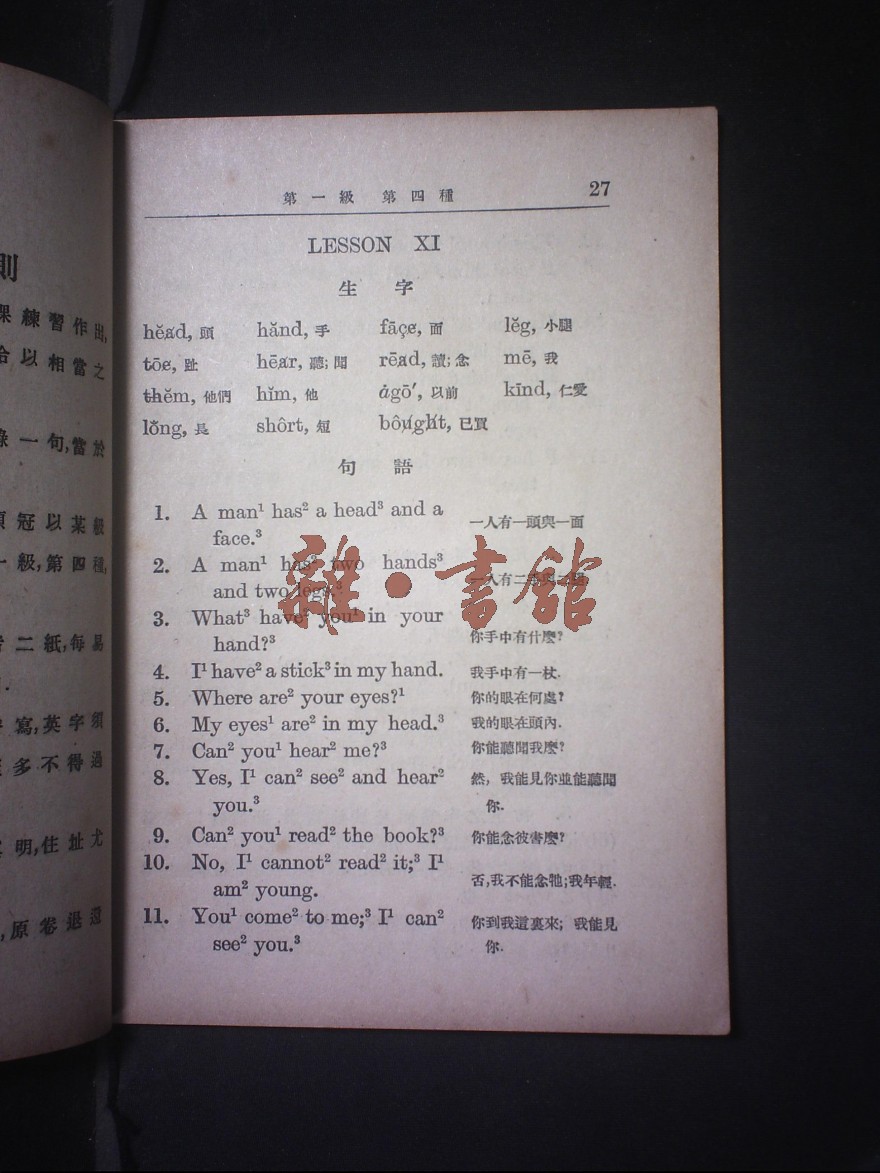 則
課練習作出,
合以相當之
錄一句,當於
須冠以某級
一級,第四種,
二紙,每易
寫,英字須
多不得過
明,住址尤
,原卷退還
第一級 第四種 27
LESSON XI
生字
hĕad, 頭 hănd, 手 fāçe, 面 lĕg, 小腿
tōe, 趾 hēar, 聽; 聞 rēad, 讀; 念 mē, 我
thĕm, 他們 hĭm, 他 ȧgō′, 以前 kīnd, 仁愛
lŏng, 長 shôrt, 短 bôught, 已買
句語
1. A man¹ has² a head³ and a 一人有一頭與一面
face.³
2. A man¹ has² two hands³ 一人有二手與二腿.
and two legs.³
3. What³ have² you¹ in your
hand?³ 你手中有什麽?
4. I¹ have² a stick³ in my hand. 我手中有一杖.
5. Where are² your eyes?¹ 你的眼在何處?
6. My eyes¹ are² in my head.³ 我的眼在頭內.
7. Can² you¹ hear² me?³ 你能聽聞我麽?
8. Yes, I¹ can² see² and hear² 然, 我能見你並能聽聞
you.³ 你.
9. Can² you¹ read² the book?³ 你能念彼書麽?
10. No, I¹ cannot² read² it;³ I¹ 否,我不能念牠;我年輕.
am² young.
11. You¹ come² to me;³ I¹ can² 你到我這裏來; 我能見
see² you.³ 你.
雜·書館